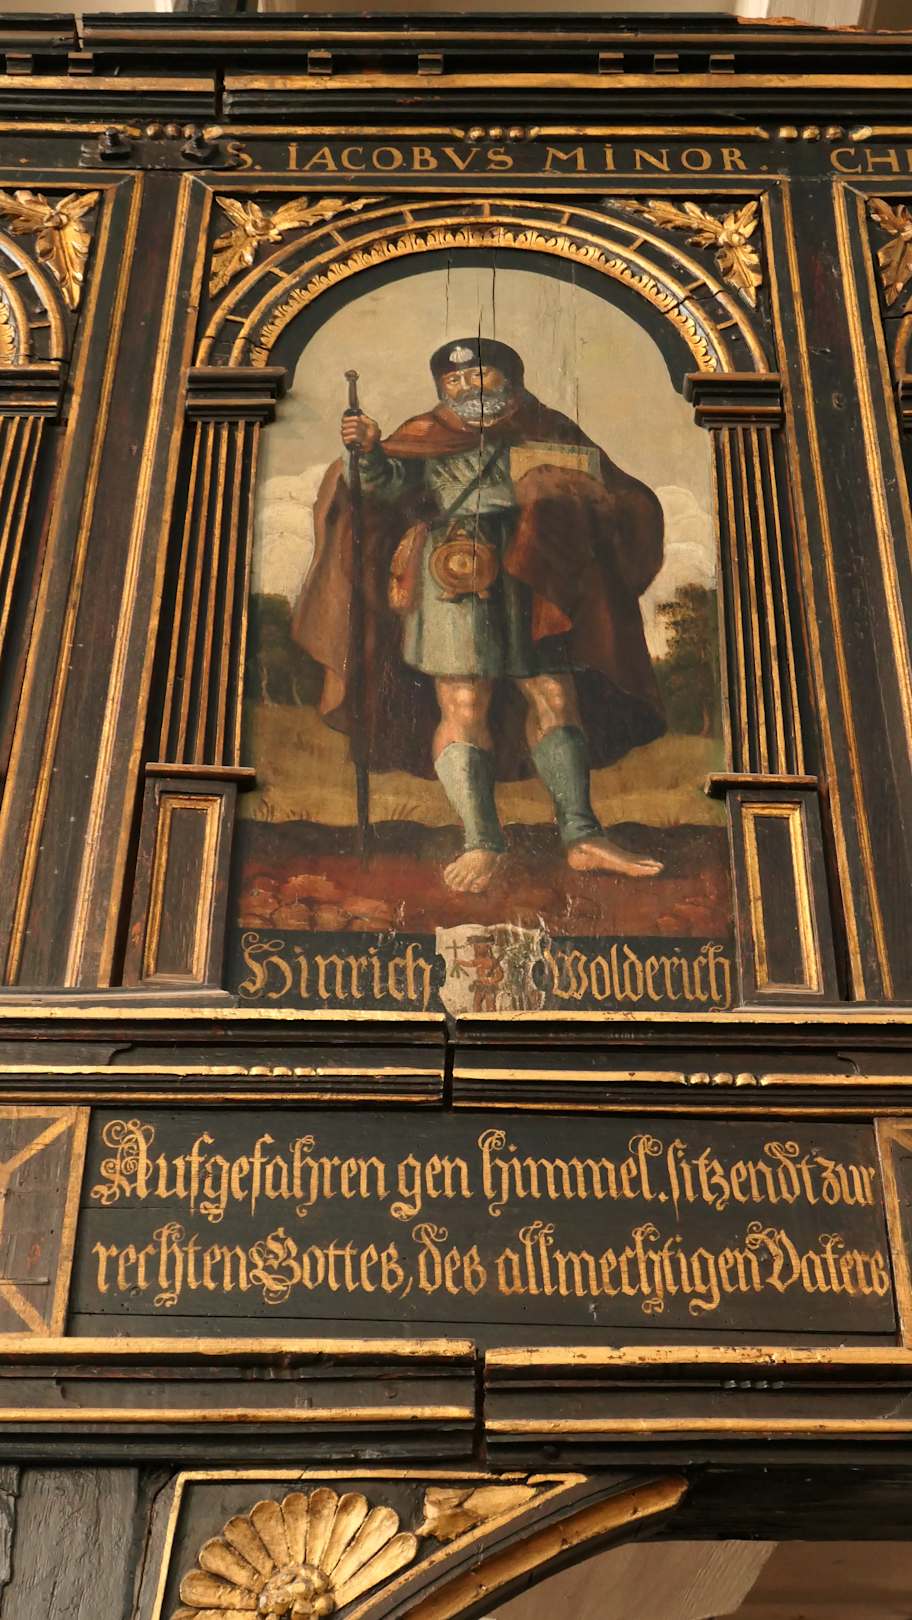 S. IACOBVS MINOR. CHR
Hinrich Wolderich
Aufgefahren gen himmel sitzendt zur
rechten Gottes, des allmechtigen Vaters